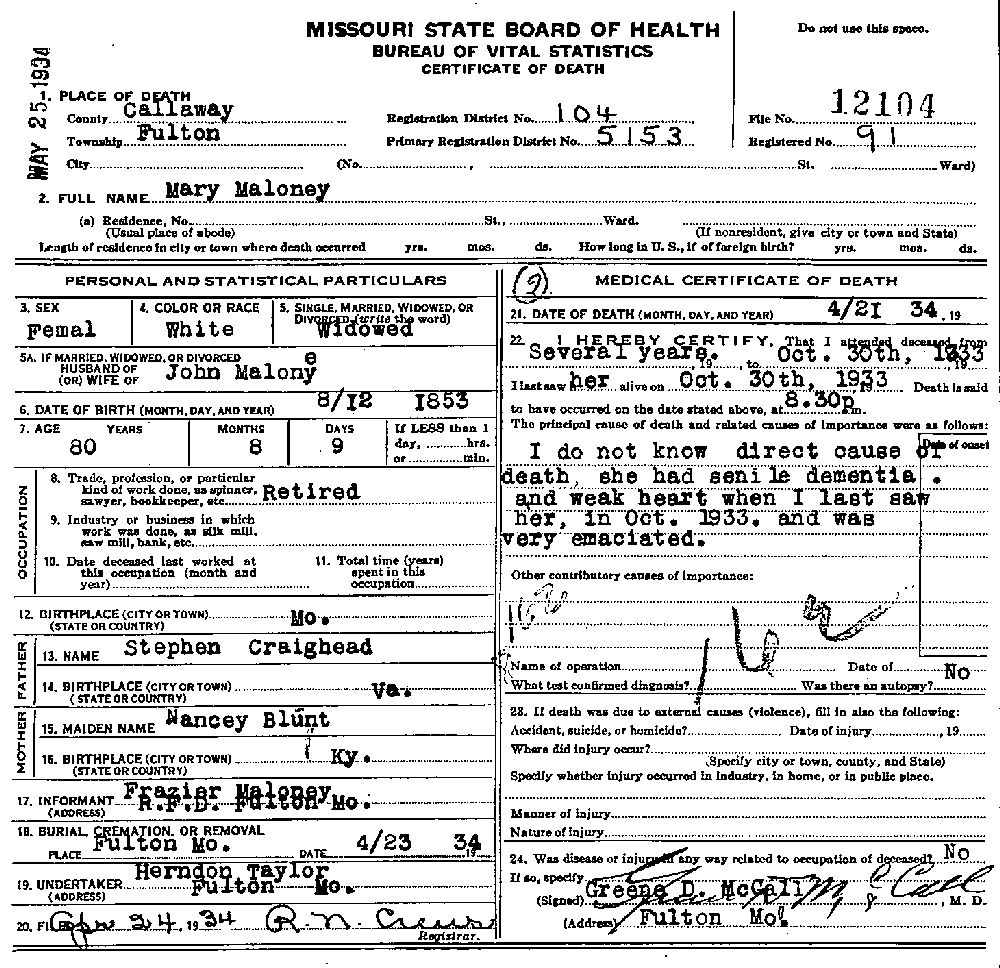 MISSOURI STATE BOARD OF HEALTH
BUREAU OF VITAL STATISTICS
CERTIFICATE OF DEATH
Do not use this space.
MAY 25 1934
1. PLACE OF DEATH
County Callaway Registration District No. 104 File No. 12104
Township Fulton Primary Registration District No. 5153 Registered No. 91
City (No. , St. Ward)
2. FULL NAME Mary Maloney
(a) Residence, No. St., Ward.
(Usual place of abode) (If nonresident, give city or town and State)
Length of residence in city or town where death occurred yrs. mos. ds. How long in U. S., if of foreign birth? yrs. mos. ds.
PERSONAL AND STATISTICAL PARTICULARS
3. SEX Femal
4. COLOR OR RACE White
5. SINGLE, MARRIED, WIDOWED, OR DIVORCED (write the word) Widowed
5A. IF MARRIED, WIDOWED, OR DIVORCED
HUSBAND OF
(OR) WIFE OF John Malony e
6. DATE OF BIRTH (MONTH, DAY, AND YEAR) 8/12 1853
7. AGE YEARS MONTHS DAYS If LESS than 1
80 8 9 day, hrs.
or min.
OCCUPATION
8. Trade, profession, or particular
kind of work done, as spinner,
sawyer, bookkeeper, etc. Retired
9. Industry or business in which
work was done, as silk mill,
saw mill, bank, etc.
10. Date deceased last worked at
this occupation (month and
year)
11. Total time (years)
spent in this
occupation
12. BIRTHPLACE (CITY OR TOWN) Mo.
(STATE OR COUNTRY)
FATHER
13. NAME Stephen Craighead
14. BIRTHPLACE (CITY OR TOWN) Va.
(STATE OR COUNTRY)
MOTHER
15. MAIDEN NAME Nancey Blunt
16. BIRTHPLACE (CITY OR TOWN) Ky.
(STATE OR COUNTRY)
17. INFORMANT Frazier Maloney
(ADDRESS) R.F.D. Fulton Mo.
18. BURIAL, CREMATION, OR REMOVAL
PLACE Fulton Mo. DATE 4/23 19 34
19. UNDERTAKER Herndon Taylor
(ADDRESS) Fulton Mo.
20. FILED Apr 24, 1934 R. N. Crews
Registrar.
(2) MEDICAL CERTIFICATE OF DEATH
21. DATE OF DEATH (MONTH, DAY, AND YEAR) 4/21 34, 19
22. I HEREBY CERTIFY, That I attended deceased from
Several years. 19 , to Oct. 30th, 1933 , 19
I last saw her alive on Oct. 30th, 1933 19 Death is said
to have occurred on the date stated above, at 8.30p m.
The principal cause of death and related causes of importance were as follows:
Date of onset
I do not know direct cause of
death, she had senile dementia .
and weak heart when I last saw
her, in Oct. 1933. and was
very emaciated.
Other contributory causes of importance:
162
Name of operation Date of
What test confirmed diagnosis? Was there an autopsy? No
23. If death was due to external causes (violence), fill in also the following:
Accident, suicide, or homicide? Date of injury , 19
Where did injury occur?
(Specify city or town, county, and State)
Specify whether injury occurred in industry, in home, or in public place.
Manner of injury
Nature of injury
24. Was disease or injury in any way related to occupation of deceased? No
If so, specify
(Signed) Greene D. McCall , M. D.
(Address) Fulton Mo.